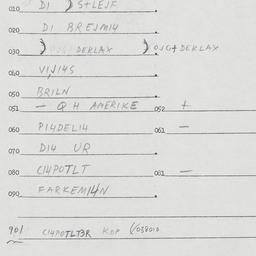 010 DI STLEJF
020 DI BREJMI4
030 DEKLAX OJG+DEKLAX
040 VIJI4S
050 BRILN
051 — Q H AMERIKE 052 +
060 PI4DELI4 061 —
070 DI4 UR
080 CI4POTLT 081 —
090 FARKEMI4N
901 CI4POTLT3R KOP 038010